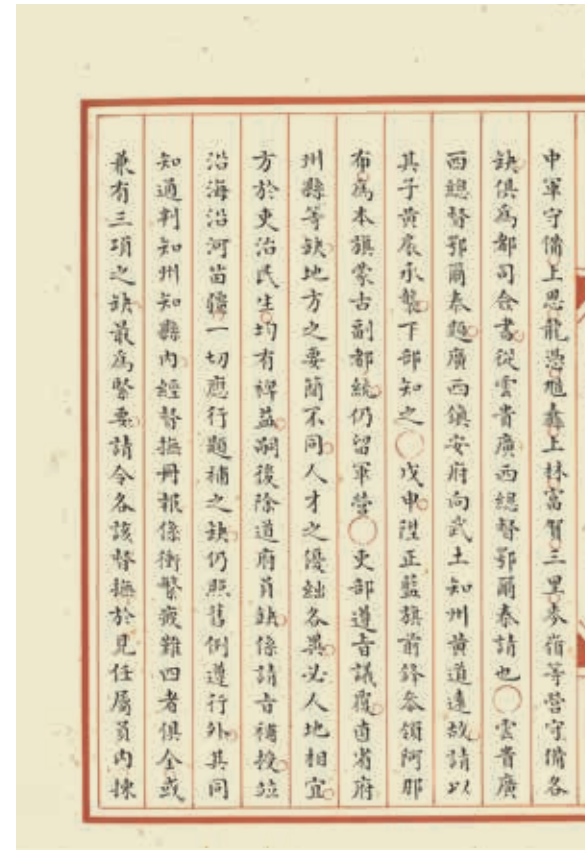 中軍守備上思龍憑馗纛上林富賀三里麥嶺等營守備各
缺俱爲都司僉書從雲貴廣西總督鄂爾泰請也○雲貴廣
西總督鄂爾泰題廣西鎮安府向武土知州黃道遠故請以
其子黃宸承襲下部知之○戊申陞正藍旗前鋒叅領阿那
布爲本旗蒙古副都統仍留軍營○吏部遵旨議覆直省府
州縣等缺地方之要簡不同人才之優絀各異必人地相宜
方於吏治民生均有裨益嗣後除道府員缺係請旨補授竝
沿海沿河苗疆一切應行題補之缺仍照舊例遵行外其同
知通判知州知縣內經督撫冊報係衝繁疲難四者俱全或
兼有三項之缺最爲緊要請令各該督撫於見任屬員內揀